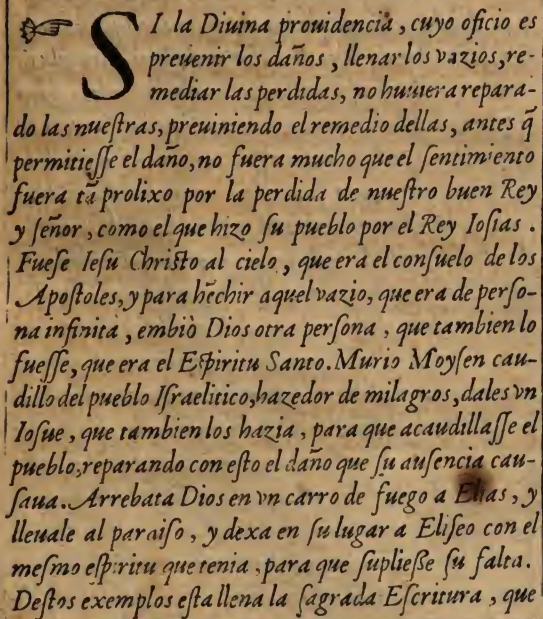 ☞ SI la Diuina prouidencia, cuyo oficio es
preuenir los daños, llenar los vazios, re-
mediar las perdidas, no huuiera repara-
do las nueſtras, preuiniendo el remedio dellas, antes q̃
permitieſſe el daño, no fuera mucho que el ſentimiento
fuera tã prolixo por la perdida de nueſtro buen Rey
y ſeñor, como el que hizo ſu pueblo por el Rey Ioſias.
Fueſe Ieſu Chriſto al cielo, que era el conſuelo de los
Apoſtoles, y para hẽchir aquel vazio, que era de perſo-
na infinita, embiò Dios otra perſona, que tambien lo
fueſſe, que era el Eſpiritu Santo. Murio Moyſen cau-
dillo del pueblo Iſraelitico, hazedor de milagros, dales vn
Ioſue, que tambien los hazia, para que acaudillaſſe el
pueblo, reparando con eſto el daño que ſu auſencia cau-
ſaua. Arrebata Dios en vn carro de fuego a Elias, y
lleuale al paraiſo, y dexa en ſu lugar a Eliſeo con el
meſmo eſpiritu que tenia, para que ſuplieſſe ſu falta.
Deſtos exemplos eſta llena la ſagrada Eſcritura, que